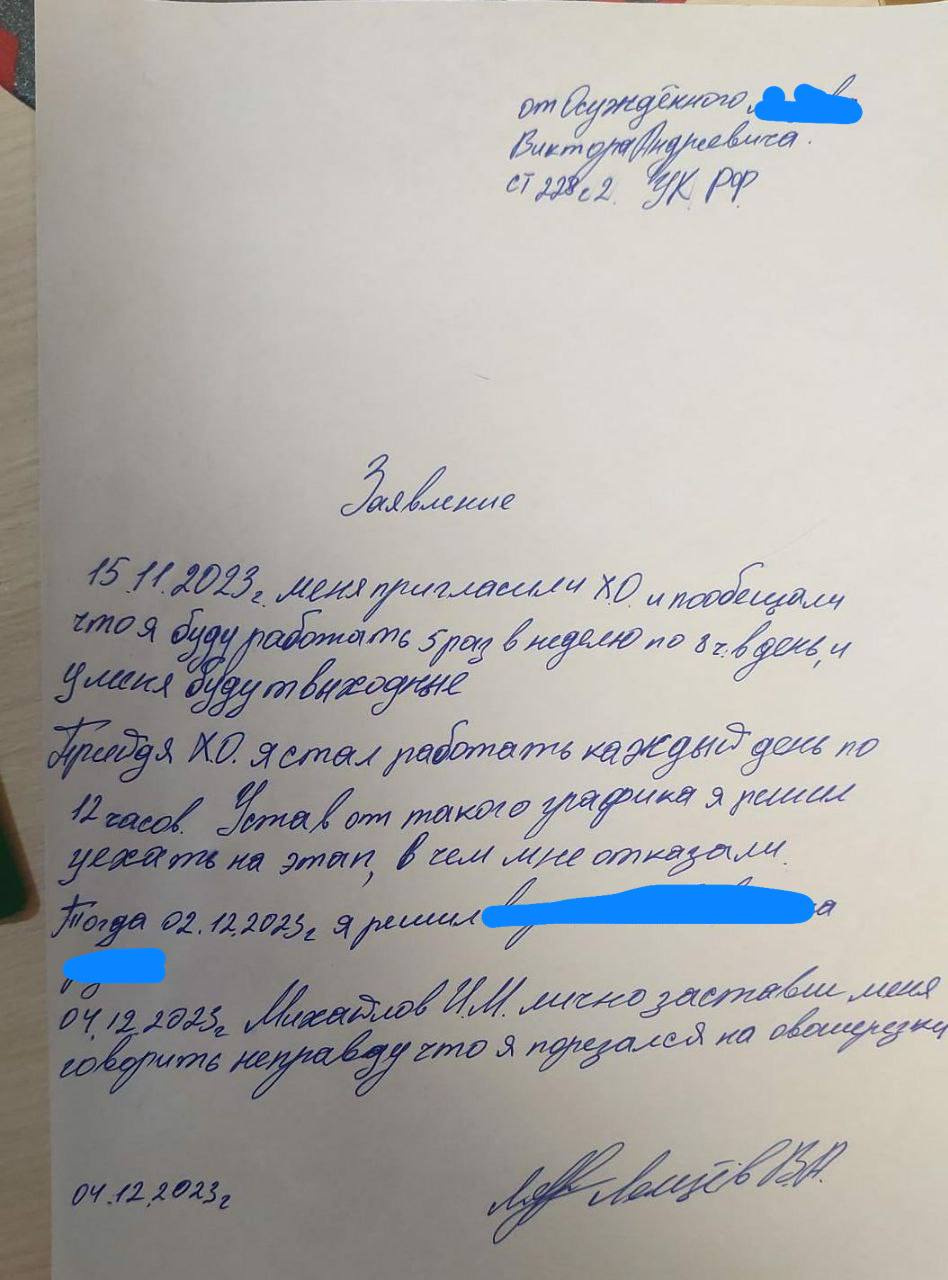 от Осуждённого
Виктора Андреевича.
ст 228 ч2. УК РФ
Заявление
15.11.2023г. меня пригласили Х.О. и пообещали
что я буду работать 5 раз в неделю по 8 ч. в день, и
у меня будут выходные
Прийдя Х.О. я стал работать каждый день по
12 часов. Устав от такого графика я решил
уехать на этап, в чем мне отказали.
Тогда 02.12.2023г я решил
04.12.2023г Михайлов И.М. лично заставил меня
говорить неправду что я порезался на овощерезки
04.12.2023г
В.А.